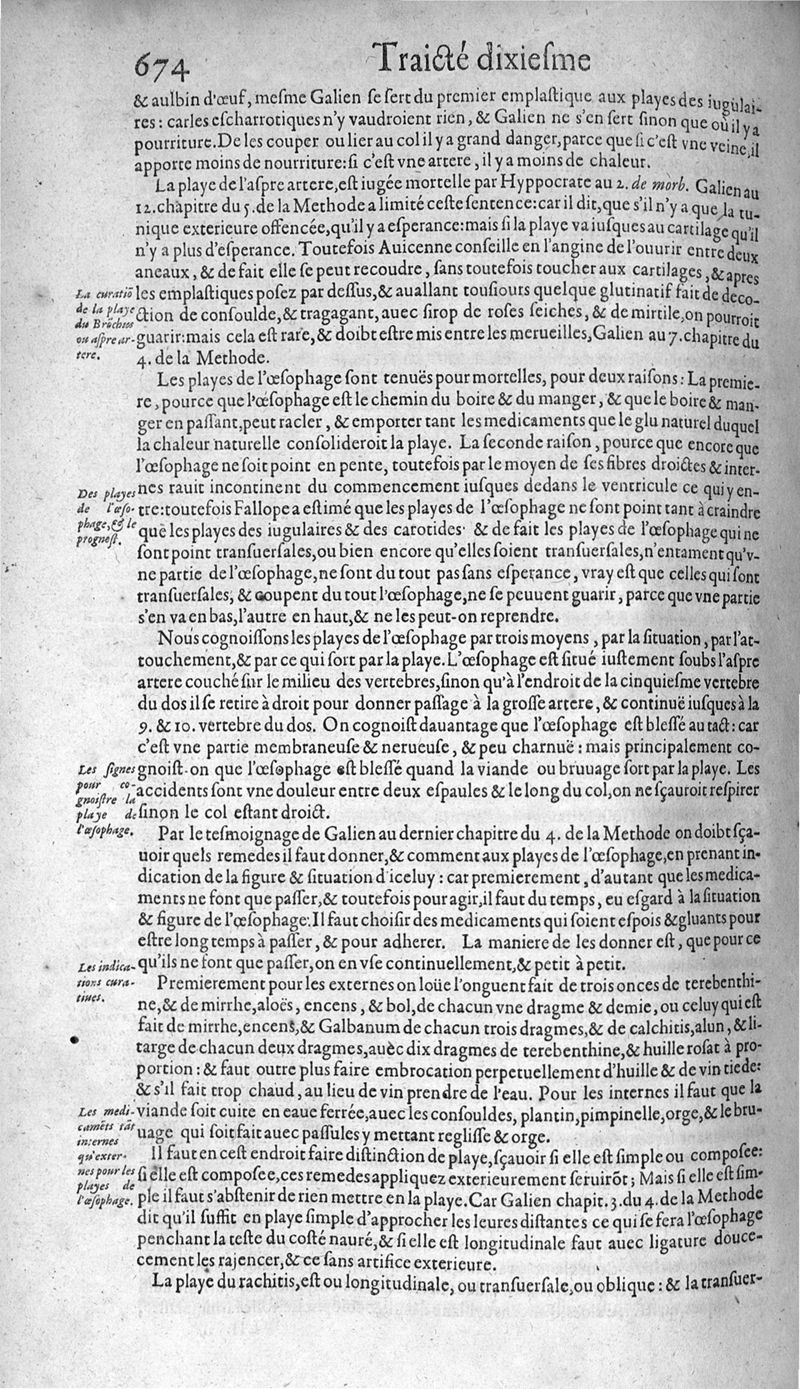 674
Traicté dixiesme
& aulbin d'œuf, mesme Galien se sert du premier emplastique aux playes des iugulai-
res : car les escharrotiques n'y vaudroient rien, & Galien ne s'en sert sinon que où il y a
pourriture. De les couper ou lier au col il y a grand danger, parce que si c'est vne veine, il
apporte moins de nourriture: si c'est vne artere, il y a moins de chaleur.
La playe de l'aspre artere, est iugée mortelle par Hyppocrate au 2. de morb. Galien au
12. chapitre du 5. de la Methode a limité ceste sentence: car il dit, que s'il n'y a que la tu-
nique exterieure offencée, qu'il y a esperance: mais si la playe va iusques au cartilage qu'il
n'y a plus d'esperance. Toutefois Auicenne conseille en l'angine de l'ouurir entre deux
aneaux, & de fait elle se peut recoudre, sans toutefois toucher aux cartilages, & apres
La curatiõ
de la playe
du Brõchos
ou aspre ar-
tere.
les emplastiques posez par dessus, & auallant tousiours quelque glutinatif fait de deco-
ction de consoulde, & tragagant, auec sirop de roses seiches, & de mirtile, on pourroit
guarir: mais cela est rare, & doibt estre mis entre les merueilles, Galien au 7. chapitre du
4. de la Methode.
Les playes de l'œsophage sont tenuës pour mortelles, pour deux raisons : La premie-
re, pource que l'œsophage est le chemin du boire & du manger, & que le boire & man-
ger en passant, peut racler, & emporter tant les medicaments que le glu naturel duquel
la chaleur naturelle consolideroit la playe. La seconde raison, pource que encore que
l'œsophage ne soit point en pente, toutefois par le moyen de ses fibres droictes & inter-
Des playes
de l'œso-
phage, & le
prognost.
nes rauit incontinent du commencement iusques dedans le ventricule ce qui y en-
tre: toutefois Fallope a estimé que les playes de l'œsophage ne sont point tant à craindre
que les playes des iugulaires & des carotides & de fait les playes de l'œsophage qui ne
sont point transuersales, ou bien encore qu'elles soient transuersales, n'entament qu'v-
ne partie de l'œsophage, ne sont du tout pas sans esperance, vray est que celles qui sont
transuersales, & coupent du tout l'œsophage, ne se peuuent guarir, parce que vne partie
s'en va en bas, l'autre en haut, & ne les peut-on reprendre.
Nous cognoissons les playes de l'œsophage par trois moyens, par la situation, par l'at-
touchement, & par ce qui sort par la playe. L'œsophage est situé iustement soubs l'aspre
artere couché sur le milieu des vertebres, sinon qu'à l'endroit de la cinquiesme vertebre
du dos il se retire à droit pour donner passage à la grosse artere, & continuë iusques à la
9. & 10. vertebre du dos. On cognoist dauantage que l'œsophage est blessé au tact: car
c'est vne partie membraneuse & nerueuse, & peu charnuë : mais principalement co-
Les signes
pour co-
gnoistre la
playe de
l'œsophage.
gnoist-on que l'œsophage est blessé quand la viande ou bruuage sort par la playe. Les
accidents sont vne douleur entre deux espaules & le long du col, on ne sçauroit respirer
sinon le col estant droict.
Par le tesmoignage de Galien au dernier chapitre du 4. de la Methode on doibt sça-
uoir quels remedes il faut donner, & comment aux playes de l'œsophage, en prenant in-
dication de la figure & situation d'iceluy : car premierement, d'autant que les medica-
ments ne font que passer, & toutefois pour agir, il faut du temps, eu esgard à la situation
& figure de l'œsophage: Il faut choisir des medicaments qui soient espois & gluants pour
estre long temps à passer, & pour adherer. La maniere de les donner est, que pour ce
Les indica-
tions cura-
tiues.
qu'ils ne font que passer, on en vse continuellement, & petit à petit.
Premierement pour les externes on loüe l'onguent fait de trois onces de terebenthi-
ne, & de mirrhe, aloës, encens, & bol, de chacun vne dragme & demie, ou celuy qui est
fait de mirrhe, encens, & Galbanum de chacun trois dragmes, & de calchitis, alun, & li-
targe de chacun deux dragmes, auèc dix dragmes de terebenthine, & huille rosat à pro-
portion : & faut outre plus faire embrocation perpetuellement d'huille & de vin tiede:
& s'il fait trop chaud, au lieu de vin prendre de l'eau. Pour les internes il faut que la
Les medi-
camẽts tãt
internes
qu'exter-
nes pour les
playes de
l'œsophage.
viande soit cuite en eaue ferrée, auec les consouldes, plantin, pimpinelle, orge, & le bru-
uage qui soit fait auec passules y mettant reglisse & orge.
Il faut en cest endroit faire distinction de playe, sçauoir si elle est simple ou composee:
si elle est composee, ces remedes appliquez exterieurement seruirõt; Mais si elle est sim-
ple il faut s'abstenir de rien mettre en la playe. Car Galien chapit. 3. du 4. de la Methode
dit qu'il suffit en playe simple d'approcher les leures distantes ce qui se fera l'œsophage
penchant la teste du costé nauré, & si elle est longitudinale faut auec ligature douce-
cement les rajencer, & ce sans artifice exterieure.
La playe du rachitis, est ou longitudinale, ou transuersale, ou oblique : & la transuer-